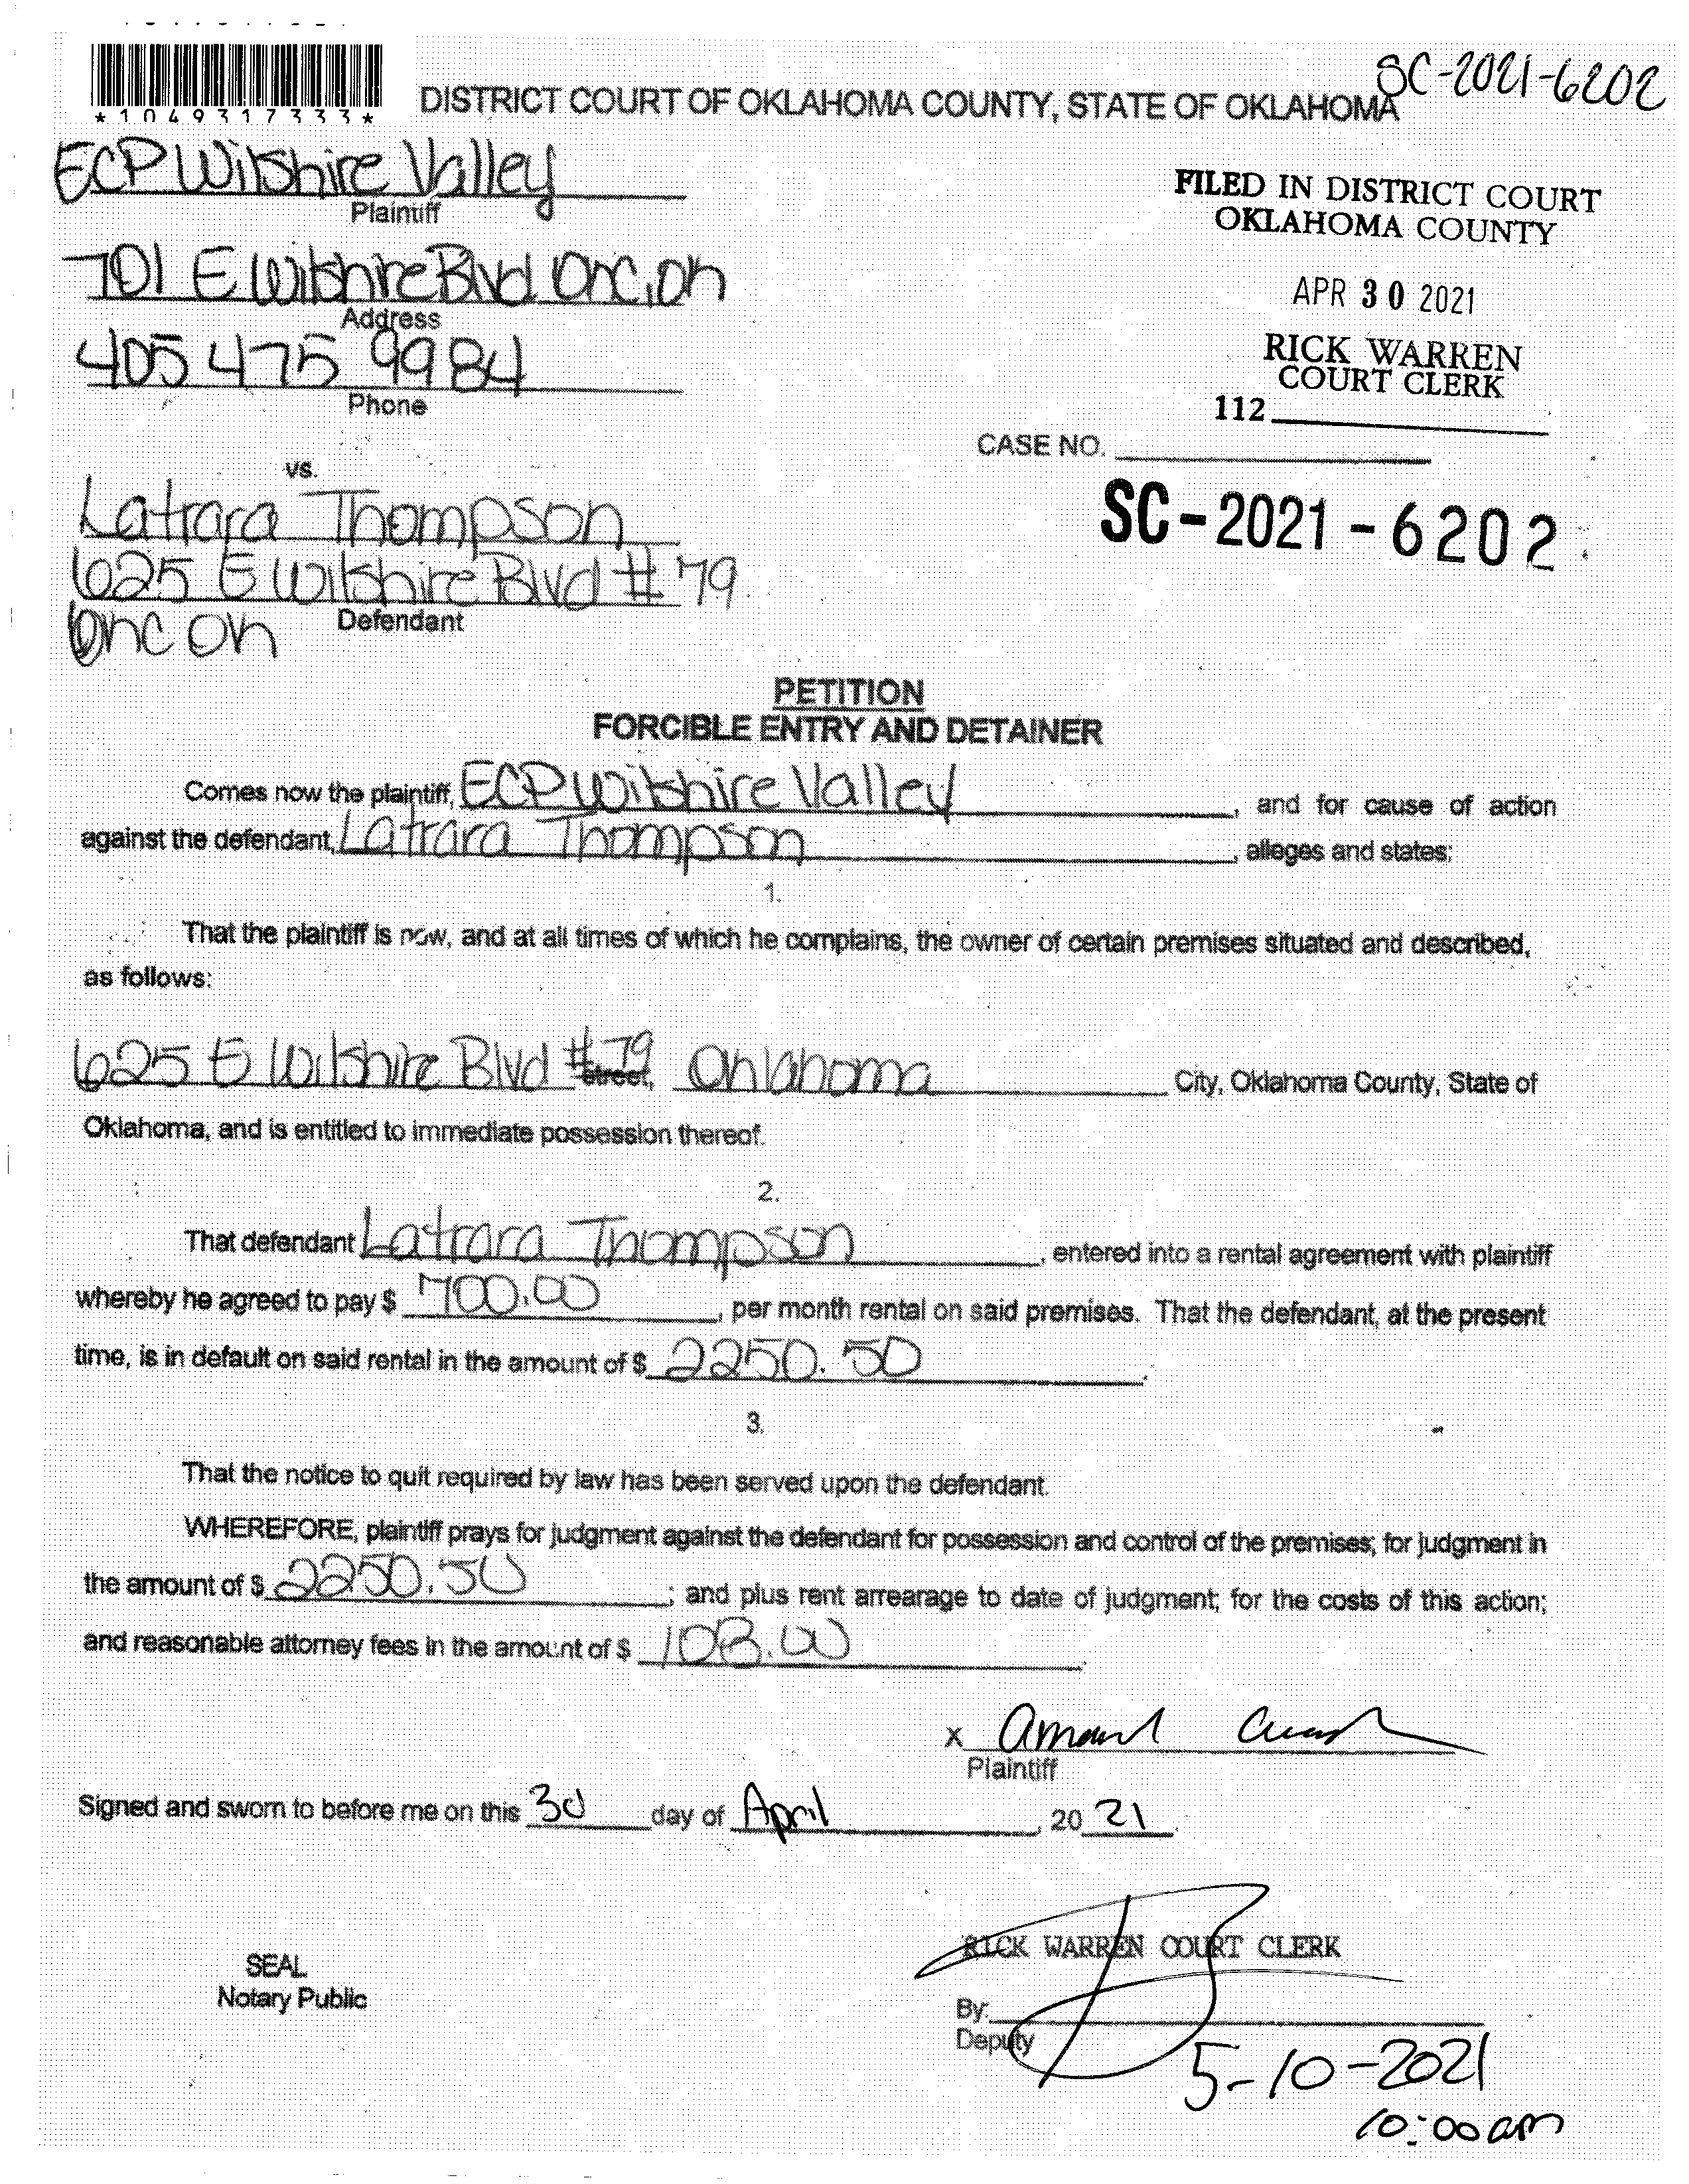 SC-2021-6202
*1049317333*
DISTRICT COURT OF OKLAHOMA COUNTY, STATE OF OKLAHOMA
ECP Wilshire Valley
Plaintiff
701 E Wilshire Blvd OKC, OK
Address
405 475 9984
Phone
FILED IN DISTRICT COURT
OKLAHOMA COUNTY
APR 30 2021
RICK WARREN
COURT CLERK
112
CASE NO.
SC-2021-6202
vs.
Latrara Thompson
625 E Wilshire Blvd # 79
OKC OK
Defendant
PETITION
FORCIBLE ENTRY AND DETAINER
Comes now the plaintiff, ECP Wilshire Valley, and for cause of action
against the defendant, Latrara Thompson, alleges and states:
1.
That the plaintiff is now, and at all times of which he complains, the owner of certain premises situated and described,
as follows:
625 E Wilshire Blvd #79 Street, Oklahoma City, Oklahoma County, State of
Oklahoma, and is entitled to immediate possession thereof.
2.
That defendant Latrara Thompson, entered into a rental agreement with plaintiff
whereby he agreed to pay $ 700.00, per month rental on said premises. That the defendant, at the present
time, is in default on said rental in the amount of $ 2250.50.
3.
That the notice to quit required by law has been served upon the defendant.
WHEREFORE, plaintiff prays for judgment against the defendant for possession and control of the premises; for judgment in
the amount of $ 2250.50; and plus rent arrearage to date of judgment; for the costs of this action;
and reasonable attorney fees in the amount of $ 108.00
X
Plaintiff
Signed and sworn to before me on this 30 day of April, 20 21.
SEAL
Notary Public
RICK WARREN COURT CLERK
By:
Deputy
5-10-2021
10:00am